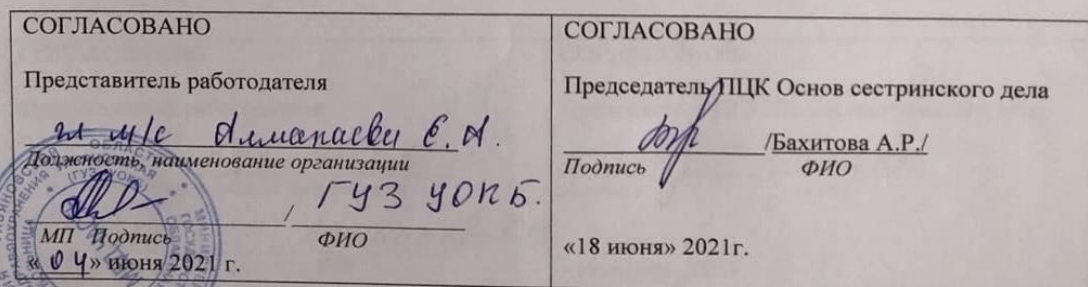 СОГЛАСОВАНО
Представитель работодателя
гл м/с Алмапаеви Е.А.
Должность, наименование организации
/ ГУЗ УОКБ.
МП Подпись ФИО
«04» июня 2021 г.
СОГЛАСОВАНО
Председатель ПЦК Основ сестринского дела
/Бахитова А.Р./
Подпись ФИО
«18 июня» 2021г.